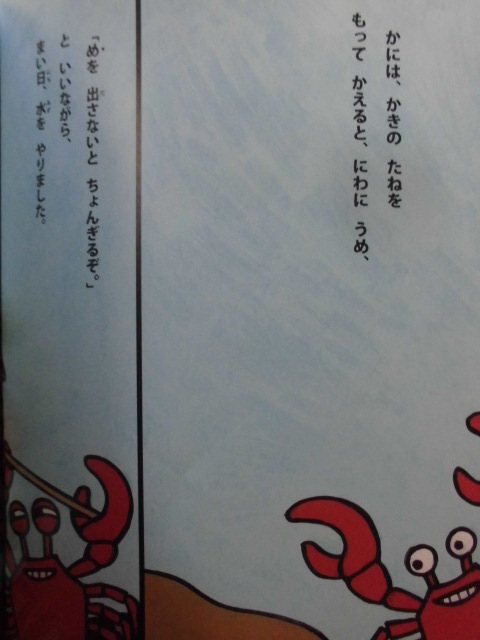 かには、かきの たねを
もって かえると、にわに うめ、
「めを 出さないと ちょんぎるぞ。」
と いいながら、
まい日、水を やりました。